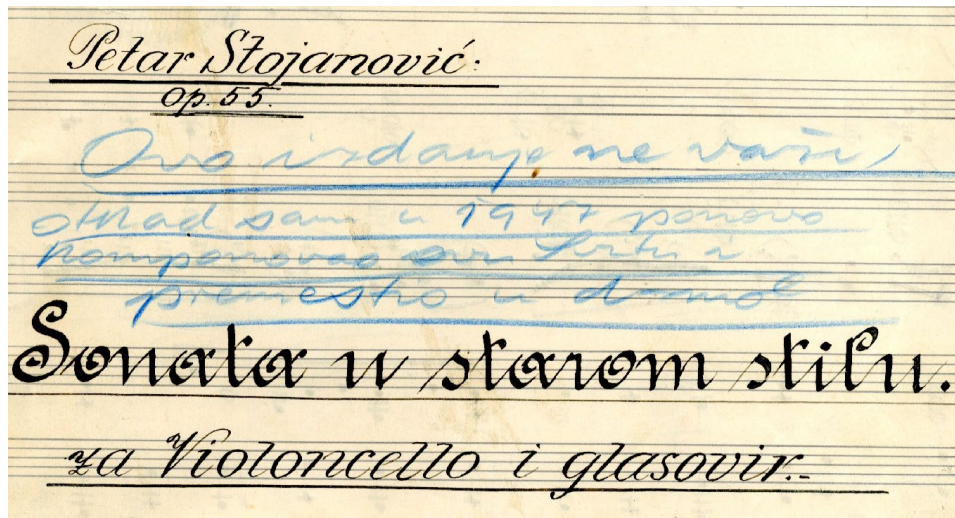 Petar Stojanović:
Op. 55.
Ovo izdanje ne važi,
otkad sam u 1947 ponovo
komponovao ovu Svitu i
premestio u d-mol
Sonata u starom stilu.
za Violoncello i glasovir.-